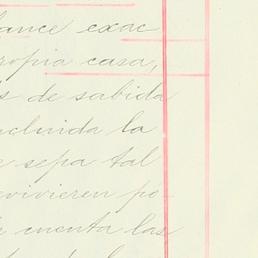 lance exac
ropia casa,
s de sabida
cluida la
e sepa tal
vivieren po
e cuenta las